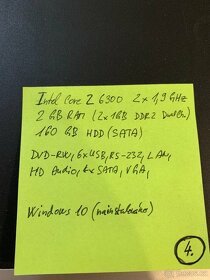 Intel Core 2 6300 2x1,9GHz
2 GB RAM (2x1GB DDR2 Dual Ch.)
160 GB HDD (SATA)
DVD-RW, 6xUSB, RS-232, LAN,
HD Audio, 4x SATA, VGA,
Windows 10 (nainstalováno)
4.